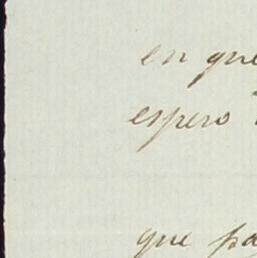 en que
espero
que pa